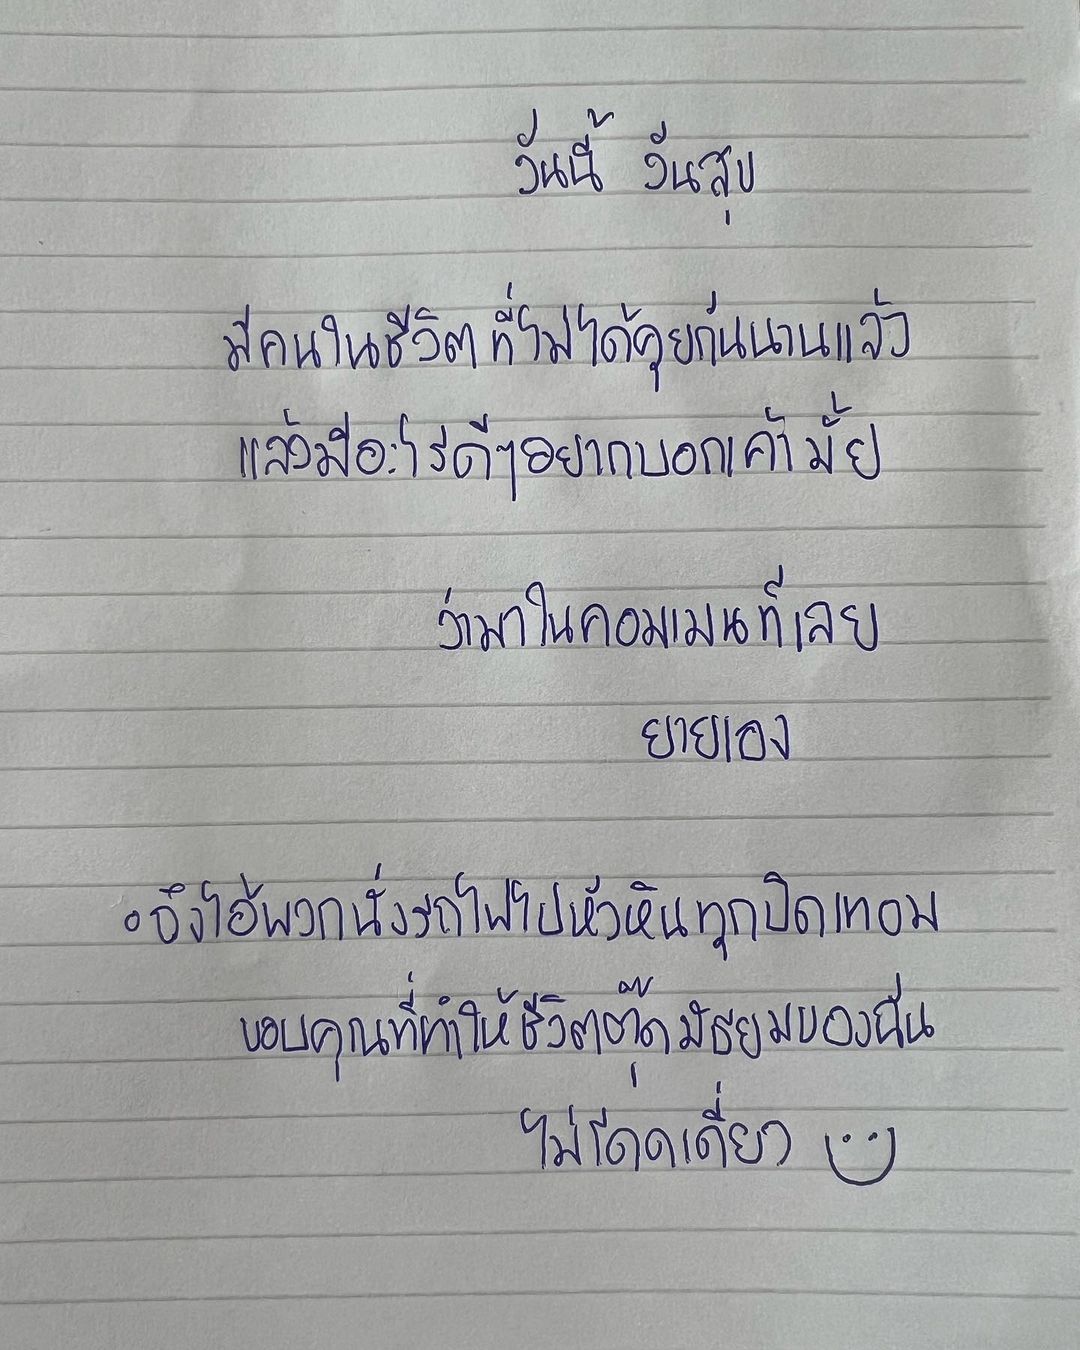 วันนี้ วันสุข
มีคนในชีวิตที่ไม่ได้คุยกันนานแล้ว
แล้วมีอะไรดีๆอยากบอกเค้ามั้ย
ว่ามาในคอมเมนท์เลย
ยายเอง
ถึงไอ้พวกนั่งรถไฟไปหัวหินทุกปิดเทอม
ขอบคุณที่ทำให้ชีวิตตุ๊ดมัธยมของฉัน
ไม่โดดเดี่ยว